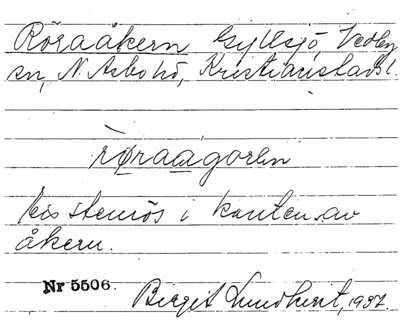 Röraåkern Gyllsjö, Vedby
sn, N. Asbo hd, Kristianstads l.
röraagorln
stenrös i kanten av
åkern.
Nr 5506. Birgit Lundkvist, 1937.